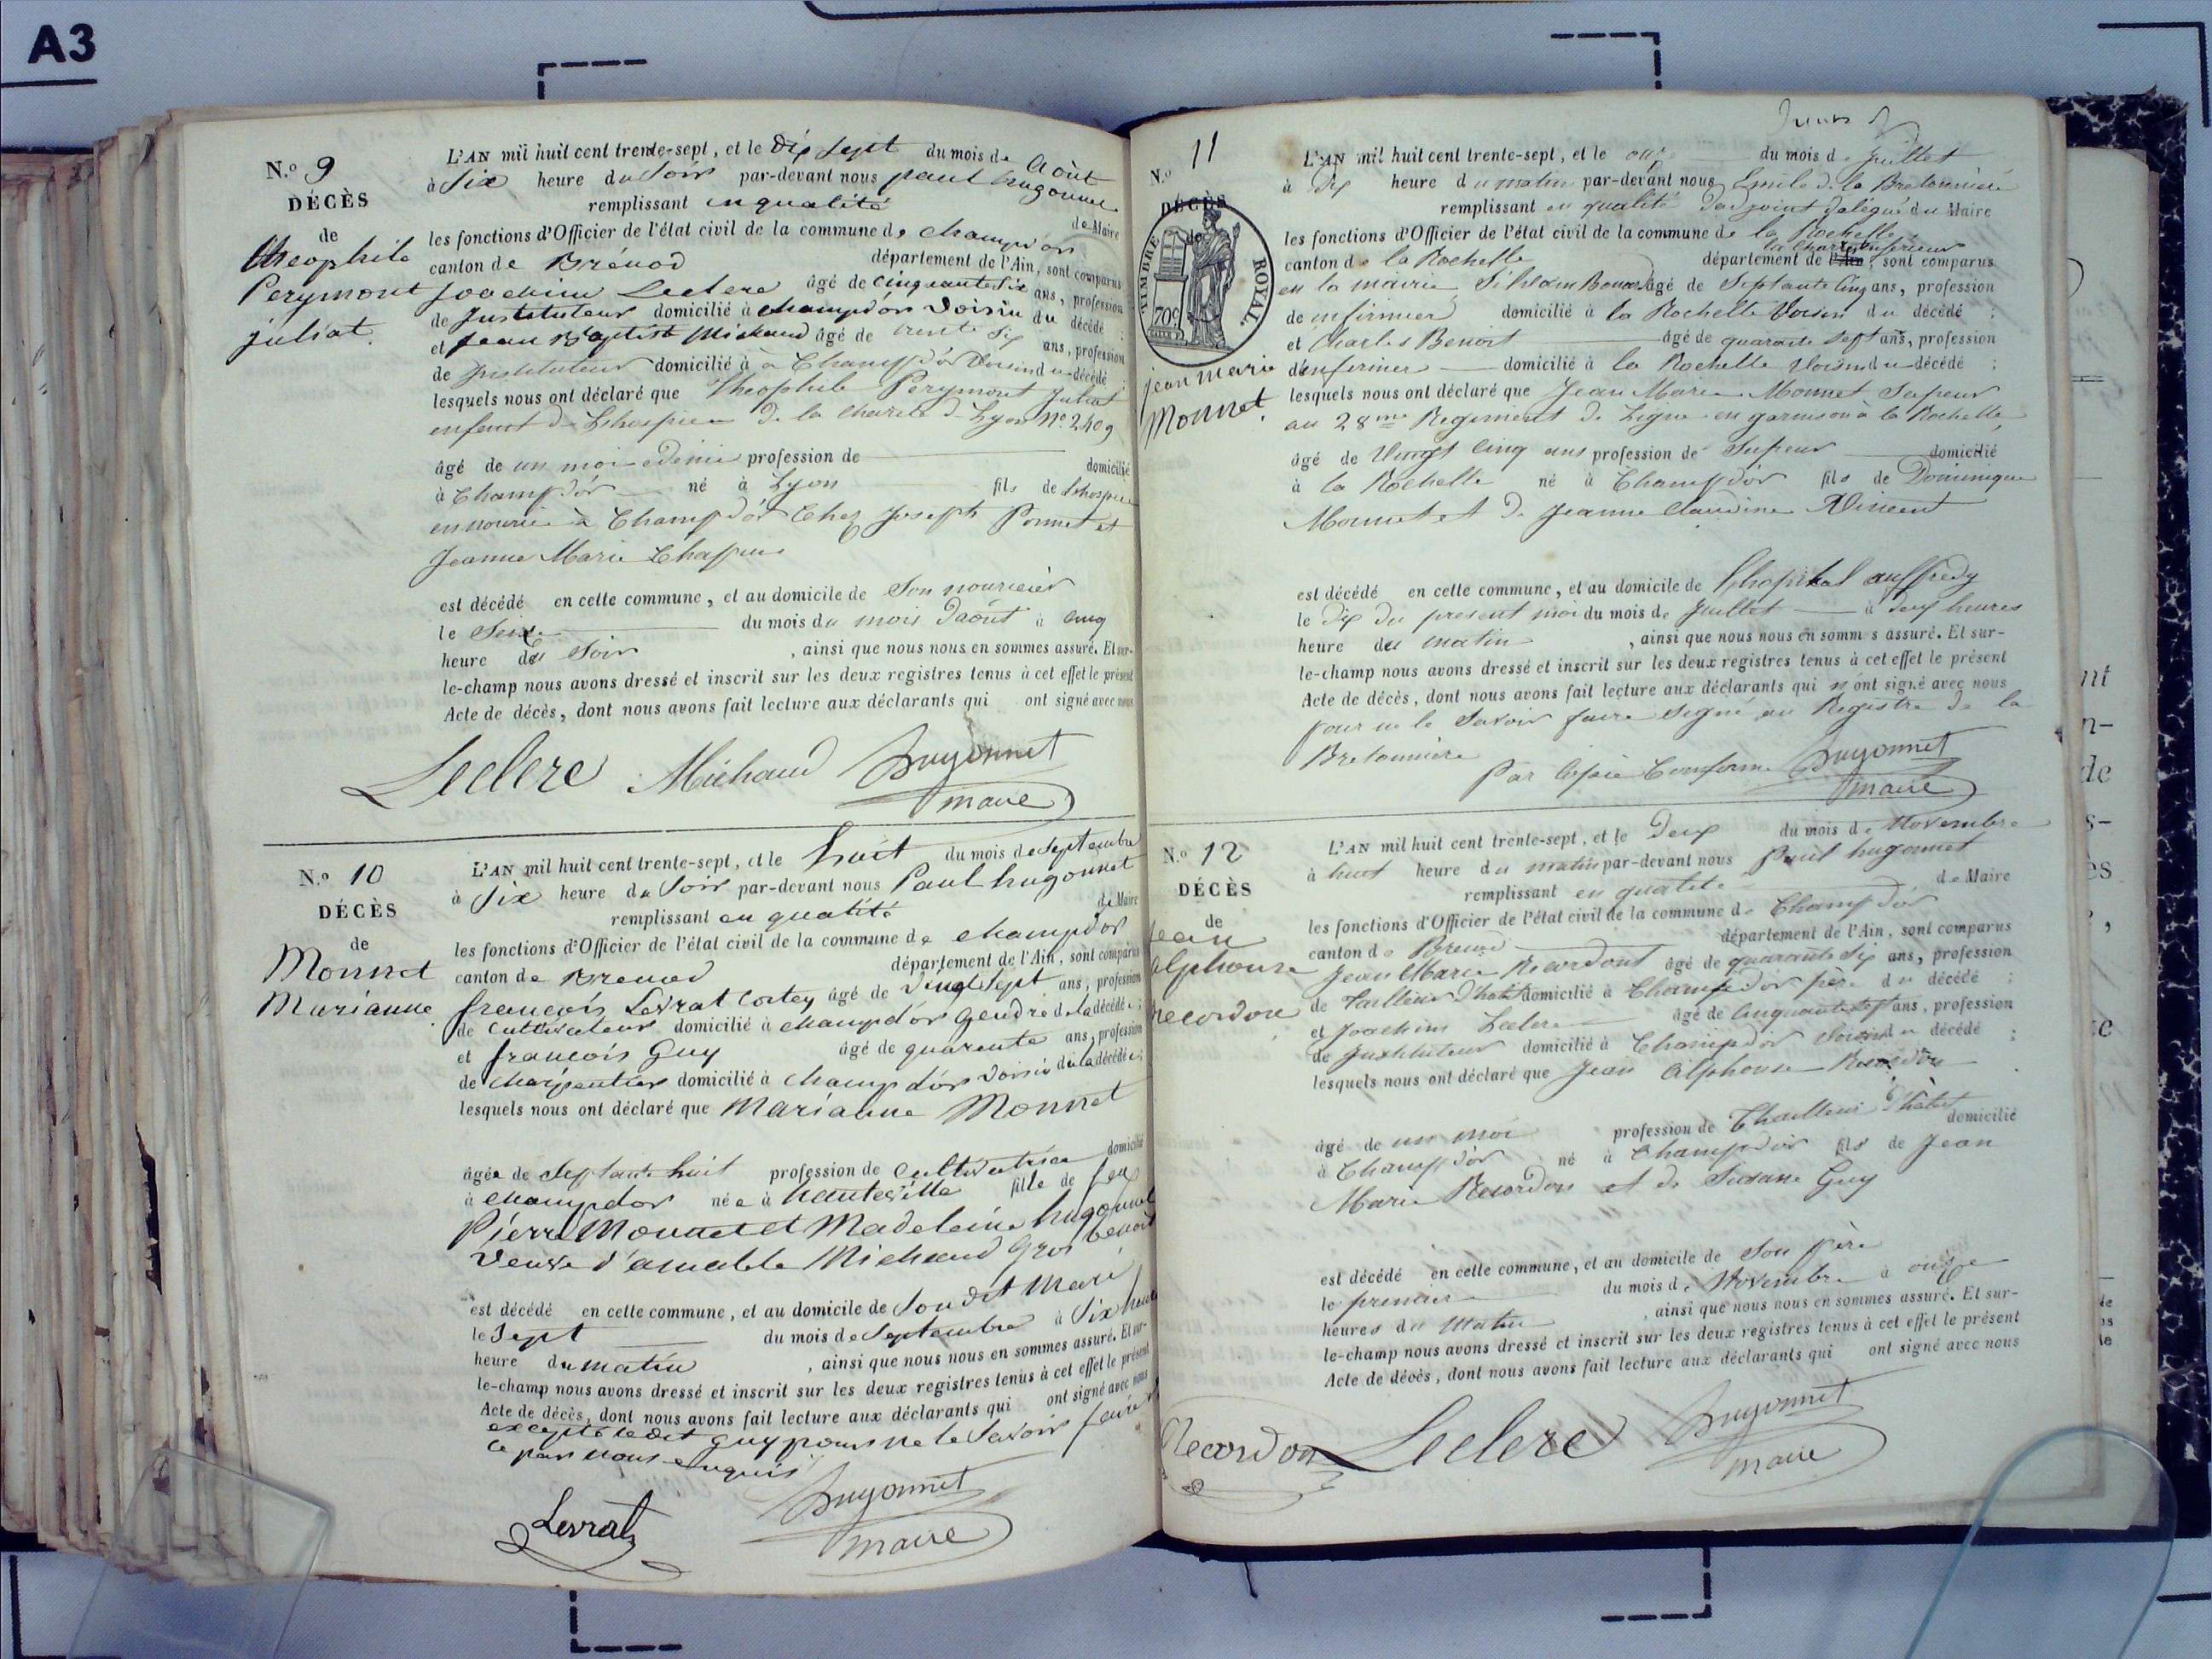 A3
N.o 9
DÉCÈS
de
theophile
Perymont
juliat.
L'AN mil huit cent trente-sept, et le dix sept du mois de Août
à Six heure du Soir par-devant nous paul hugonnet
remplissant en qualité de Maire
les fonctions d'Officier de l'état civil de la commune de champdor
canton de Brénod département de l'Ain, sont comparus
Joachim Leclerc âgé de cinquante six ans, profession
de Justituteur domicilié à champdor voisin du décédé ;
et jean Baptiste Michaud âgé de trente six ans, profession
de Justituteur domicilié à a Champd'or voisin du décédé ;
lesquels nous ont déclaré que Theophile Perymont Juliat
enfant de Lhospice de la Charité de Lyon No. 2409
âgé de un moi edemi profession de domicilié
à Champd'or né à Lyon fils de Lhospice
en nourice à Champd'or Chez Joseph Ponnet et
Jeanne Marie Chapuis
est décédé en cette commune, et au domicile de Son nouricier
le Seize du mois du mois d'août à cinq
heure du Soir , ainsi que nous nous en sommes assuré. Et sur-
le-champ nous avons dressé et inscrit sur les deux registres tenus à cet effet le présent
Acte de décès, dont nous avons fait lecture aux déclarants qui ont signé avec nous
Leclerc Michaud hugonnet
maire
N.o 10
DÉCÈS
de
Monnet
Marianne
L'AN mil huit cent trente-sept, et le huit du mois de Septembre
à Six heure du Soir par-devant nous Paul hugonnet
remplissant en qualité de Maire
les fonctions d'Officier de l'état civil de la commune de champdor
canton de Brenod département de l'Ain, sont comparus
françois Levrat Cortey âgé de vingt Sept ans, profession
de Cultivateur domicilié à champdor gendre de la décédée ;
et françois Guy âgé de quarente ans, profession
de charpentier domicilié à champdor voisin de la décédée ;
lesquels nous ont déclaré que Marianne Monnet
âgée de Septante huit profession de Cultivatrice domicilié
à champdor née à hauteville fille de feux
Pierre Monnet et Madeleine hugonnet
veuve d'amable Michaud Gros benoit
est décédé en cette commune, et au domicile de Son dit Mari
le Sept du mois de Septembre à Six heure
heure du matin , ainsi que nous nous en sommes assuré. Et sur-
le-champ nous avons dressé et inscrit sur les deux registres tenus à cet effet le présent
Acte de décès, dont nous avons fait lecture aux déclarants qui ont signé avec nous
excepté ledit guy pour ne le Savoir faire
ce par nous enquis
Levrat hugonnet
maire
N.o 11
DÉCÈS
de
TIMBRE ROYAL.
70c
jean marie
Monnet.
L'AN mil huit cent trente-sept, et le onze du mois de Juillet
à dix heure du matin par-devant nous Emile de la Bretonnière
remplissant en qualité d'adjoint délégué du Maire
les fonctions d'Officier de l'état civil de la commune de la Rochelle
la Charente inférieure
canton de la Rochelle département de l'Ain, sont comparus
en la mairie âgé de Septante Cinq ans, profession
de infirmier domicilié à la Rochelle Voisin du décédé ;
et Charles Benoit âgé de quarante Sept ans, profession
d'infirmier domicilié à la Rochelle Voisin du décédé ;
lesquels nous ont déclaré que Jean Marie Monnet Sapeur
au 28me Regiment de Ligne en garnison à la Rochelle
âgé de Vingt Cinq ans profession de Sapeur domicilié
à la Rochelle né à Champd'or fils de Dominique
Monnet et de Jeanne Claudine Vincent
est décédé en cette commune, et au domicile de Lhopital auffredy
le dix du present moi du mois de Juillet à deux heures
heure du matin , ainsi que nous nous en somm s assuré. Et sur-
le-champ nous avons dressé et inscrit sur les deux registres tenus à cet effet le présent
Acte de décès, dont nous avons fait lecture aux déclarants qui n'ont signé avec nous
pour ne le Savoir faire Signé au Registre de la
Bretonnière
Par Copie Conforme hugonnet
maire
N.o 12
DÉCÈS
de
jean
alphonse
recordon
L'AN mil huit cent trente-sept, et le deux du mois de Novembre
à huit heure du matin par-devant nous Paul hugonnet
remplissant en qualité de Maire
les fonctions d'Officier de l'état civil de la commune de Champd'or
canton de Brenod département de l'Ain, sont comparus
Jean Marie Recordont âgé de quarante Six ans, profession
de Tailleur d'habit domicilié à Champd'or père du décédé ;
et Joachim Leclerc âgé de Cinquante Sept ans, profession
de Justituteur domicilié à Champd'or Voisin du décédé ;
lesquels nous ont déclaré que Jean Alphonse Recordon
âgé de un moi profession de Thailleur d'habit domicilié
à Champd'or né à Champd'or fils de Jean
Marie Recordon et de Susane Guy
est décédé en cette commune, et au domicile de Son père
le premier du mois de Novembre à onze
heures du Matin , ainsi que nous nous en sommes assuré. Et sur-
le-champ nous avons dressé et inscrit sur les deux registres tenus à cet effet le présent
Acte de décès, dont nous avons fait lecture aux déclarants qui ont signé avec nous
Recordon Leclerc hugonnet
maire